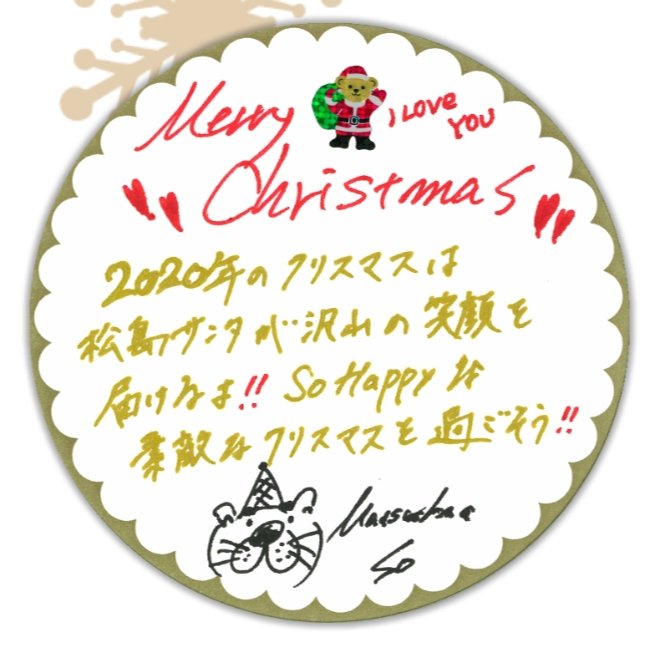 Merry
I LOVE
YOU
Christmas
2020年のクリスマスは
松島サンタが沢山の笑顔を
届けるよ!! So Happyな
素敵なクリスマスを過ごそう!!
Matsushima
So